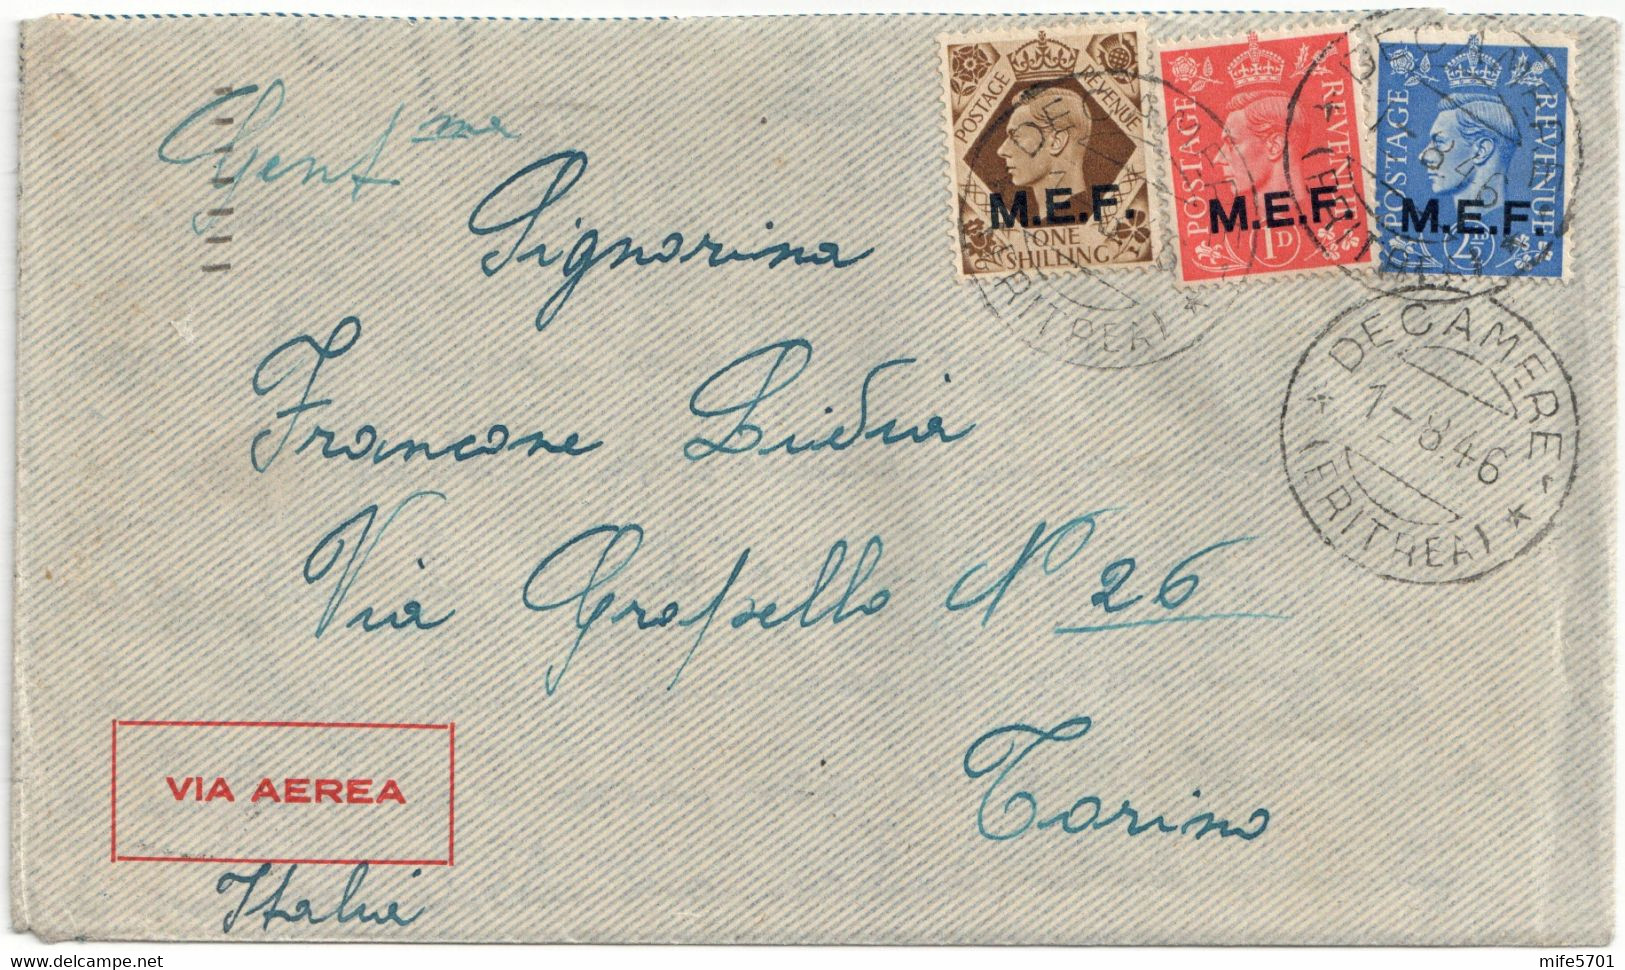 Gent.ma
Signorina
Francone Lidia
Via Grapello N° 26
Torino
VIA AEREA
Italia
POSTAGE REVENUE
M.E.F.
ONE
SHILLING
POSTAGE REVENUE
M.E.F.
1D
POSTAGE REVENUE
M.E.F.
2½D
DECAMERE
(ERITREA)
DECAMERE
1-8.46
(ERITREA)
DECAMERE
1-8.46
(ERITREA)
delcampe.net
mife5701